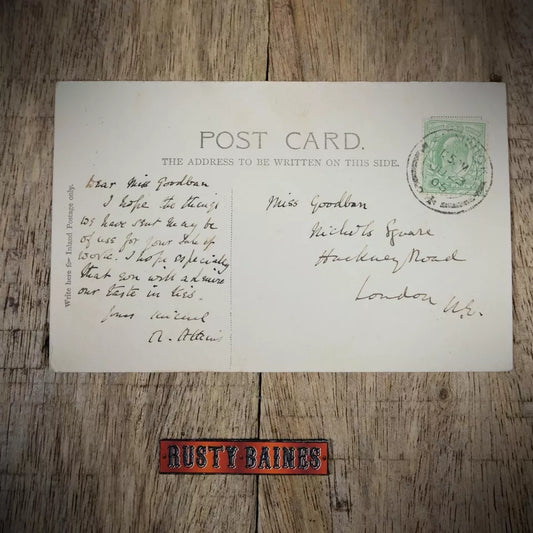 POST CARD.
THE ADDRESS TO BE WRITTEN ON THIS SIDE.
Write here for Inland Postage only.
Dear Miss Goodban
I hope the things
we have sent may be
of use for your Sale of
Work. I hope especially
that you will admire
our taste in this.
Yours
A. Atkins
Miss Goodban
Nichols Square
Hackney Road
London
RUSTY BAINES